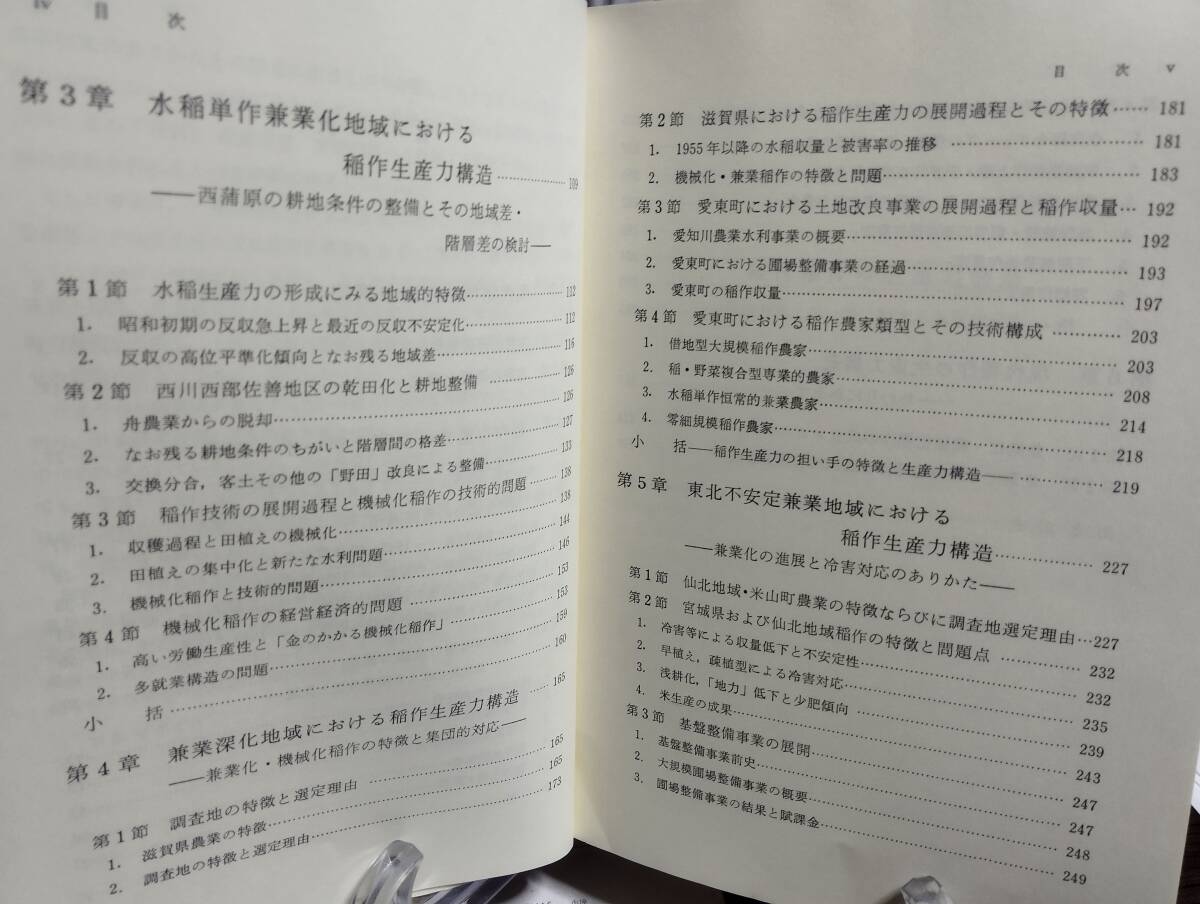 iv 目 次
第3章 水稲単作兼業化地域における
稲作生産力構造……………109
——西蒲原の耕地条件の整備とその地域差・
階層差の検討—
第1節 水稲生産力の形成にみる地域的特徴……………112
1. 昭和初期の反収急上昇と最近の反収不安定化……………112
2. 反収の高位平準化傾向となお残る地域差……………116
第2節 西川西部佐善地区の乾田化と耕地整備……………126
1. 舟農業からの脱却……………126
2. なお残る耕地条件のちがいと階層間の格差……………127
3. 交換分合，客土その他の「野田」改良による整備……………133
第3節 稲作技術の展開過程と機械化稲作の技術的問題……………138
1. 収穫過程と田植えの機械化……………138
2. 田植えの集中化と新たな水利問題……………144
3. 機械化稲作と技術的問題……………146
第4節 機械化稲作の経営経済的問題……………153
1. 高い労働生産性と「金のかかる機械化稲作」……………153
2. 多就業構造の問題……………159
小 括……………160
第4章 兼業深化地域における稲作生産力構造……165
——兼業化・機械化稲作の特徴と集団的対応——
第1節 調査地の特徴と選定理由……………165
1. 滋賀県農業の特徴……………165
2. 調査地の特徴と選定理由……………173
目 次 v
第2節 滋賀県における稲作生産力の展開過程とその特徴……181
1. 1955年以降の水稲収量と被害率の推移……………181
2. 機械化・兼業稲作の特徴と問題……………183
第3節 愛東町における土地改良事業の展開過程と稲作収量…192
1. 愛知川農業水利事業の概要……………192
2. 愛東町における圃場整備事業の経過……………193
3. 愛東町の稲作収量……………197
第4節 愛東町における稲作農家類型とその技術構成……………203
1. 借地型大規模稲作農家……………203
2. 稲・野菜複合型専業的農家……………208
3. 水稲単作恒常的兼業農家……………214
4. 零細規模稲作農家……………218
小 括——稲作生産力の担い手の特徴と生産力構造——……………219
第5章 東北不安定兼業地域における
稲作生産力構造……………227
——兼業化の進展と冷害対応のありかた——
第1節 仙北地域・米山町農業の特徴ならびに調査地選定理由…227
第2節 宮城県および仙北地域稲作の特徴と問題点……………232
1. 冷害等による収量低下と不安定性……………232
2. 早植え，疎植型による冷害対応……………235
3. 浅耕化，「地力」低下と少肥傾向……………239
4. 米生産の成果……………243
第3節 基盤整備事業の展開……………247
1. 基盤整備事業前史……………247
2. 大規模圃場整備事業の概要……………248
3. 圃場整備事業の結果と賦課金……………249